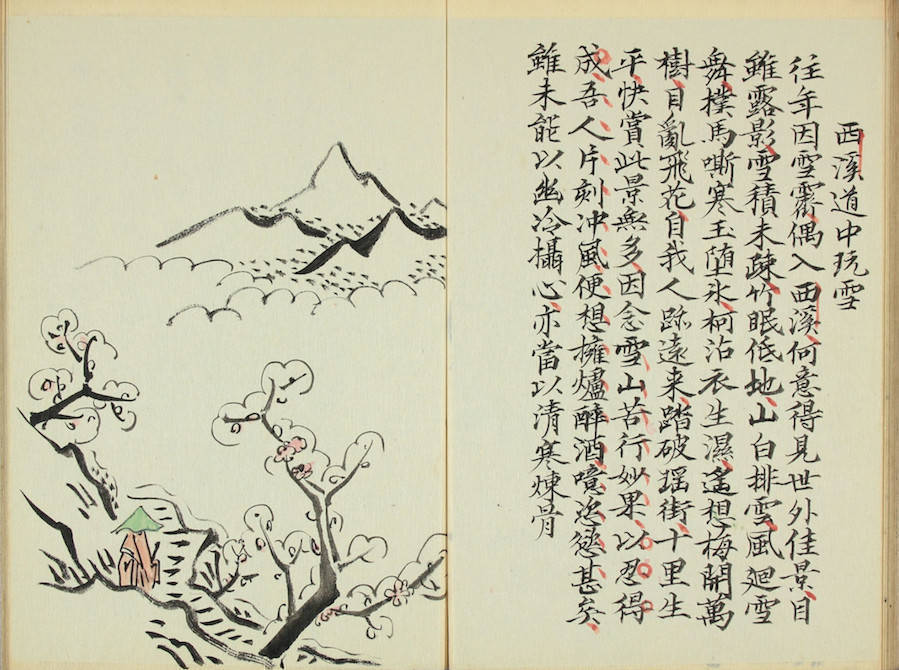 西溪道中玩雪
往年因雪霽偶入西溪何意得見世外佳景日
雖露影雪積未疎竹眠低地山白排雲風迴雪
舞撲馬嘶寒玉堕氷柯沾衣生濕遙想梅開萬
樹目亂飛花自我人跡遠来踏破瑶街十里生
平快賞此景無多因念雪山苦行妙果以忍得
成吾人片刻冲風便想擁爐醉酒噫恣慾甚矣
雖未能以幽冷攝心亦當以清寒煉骨